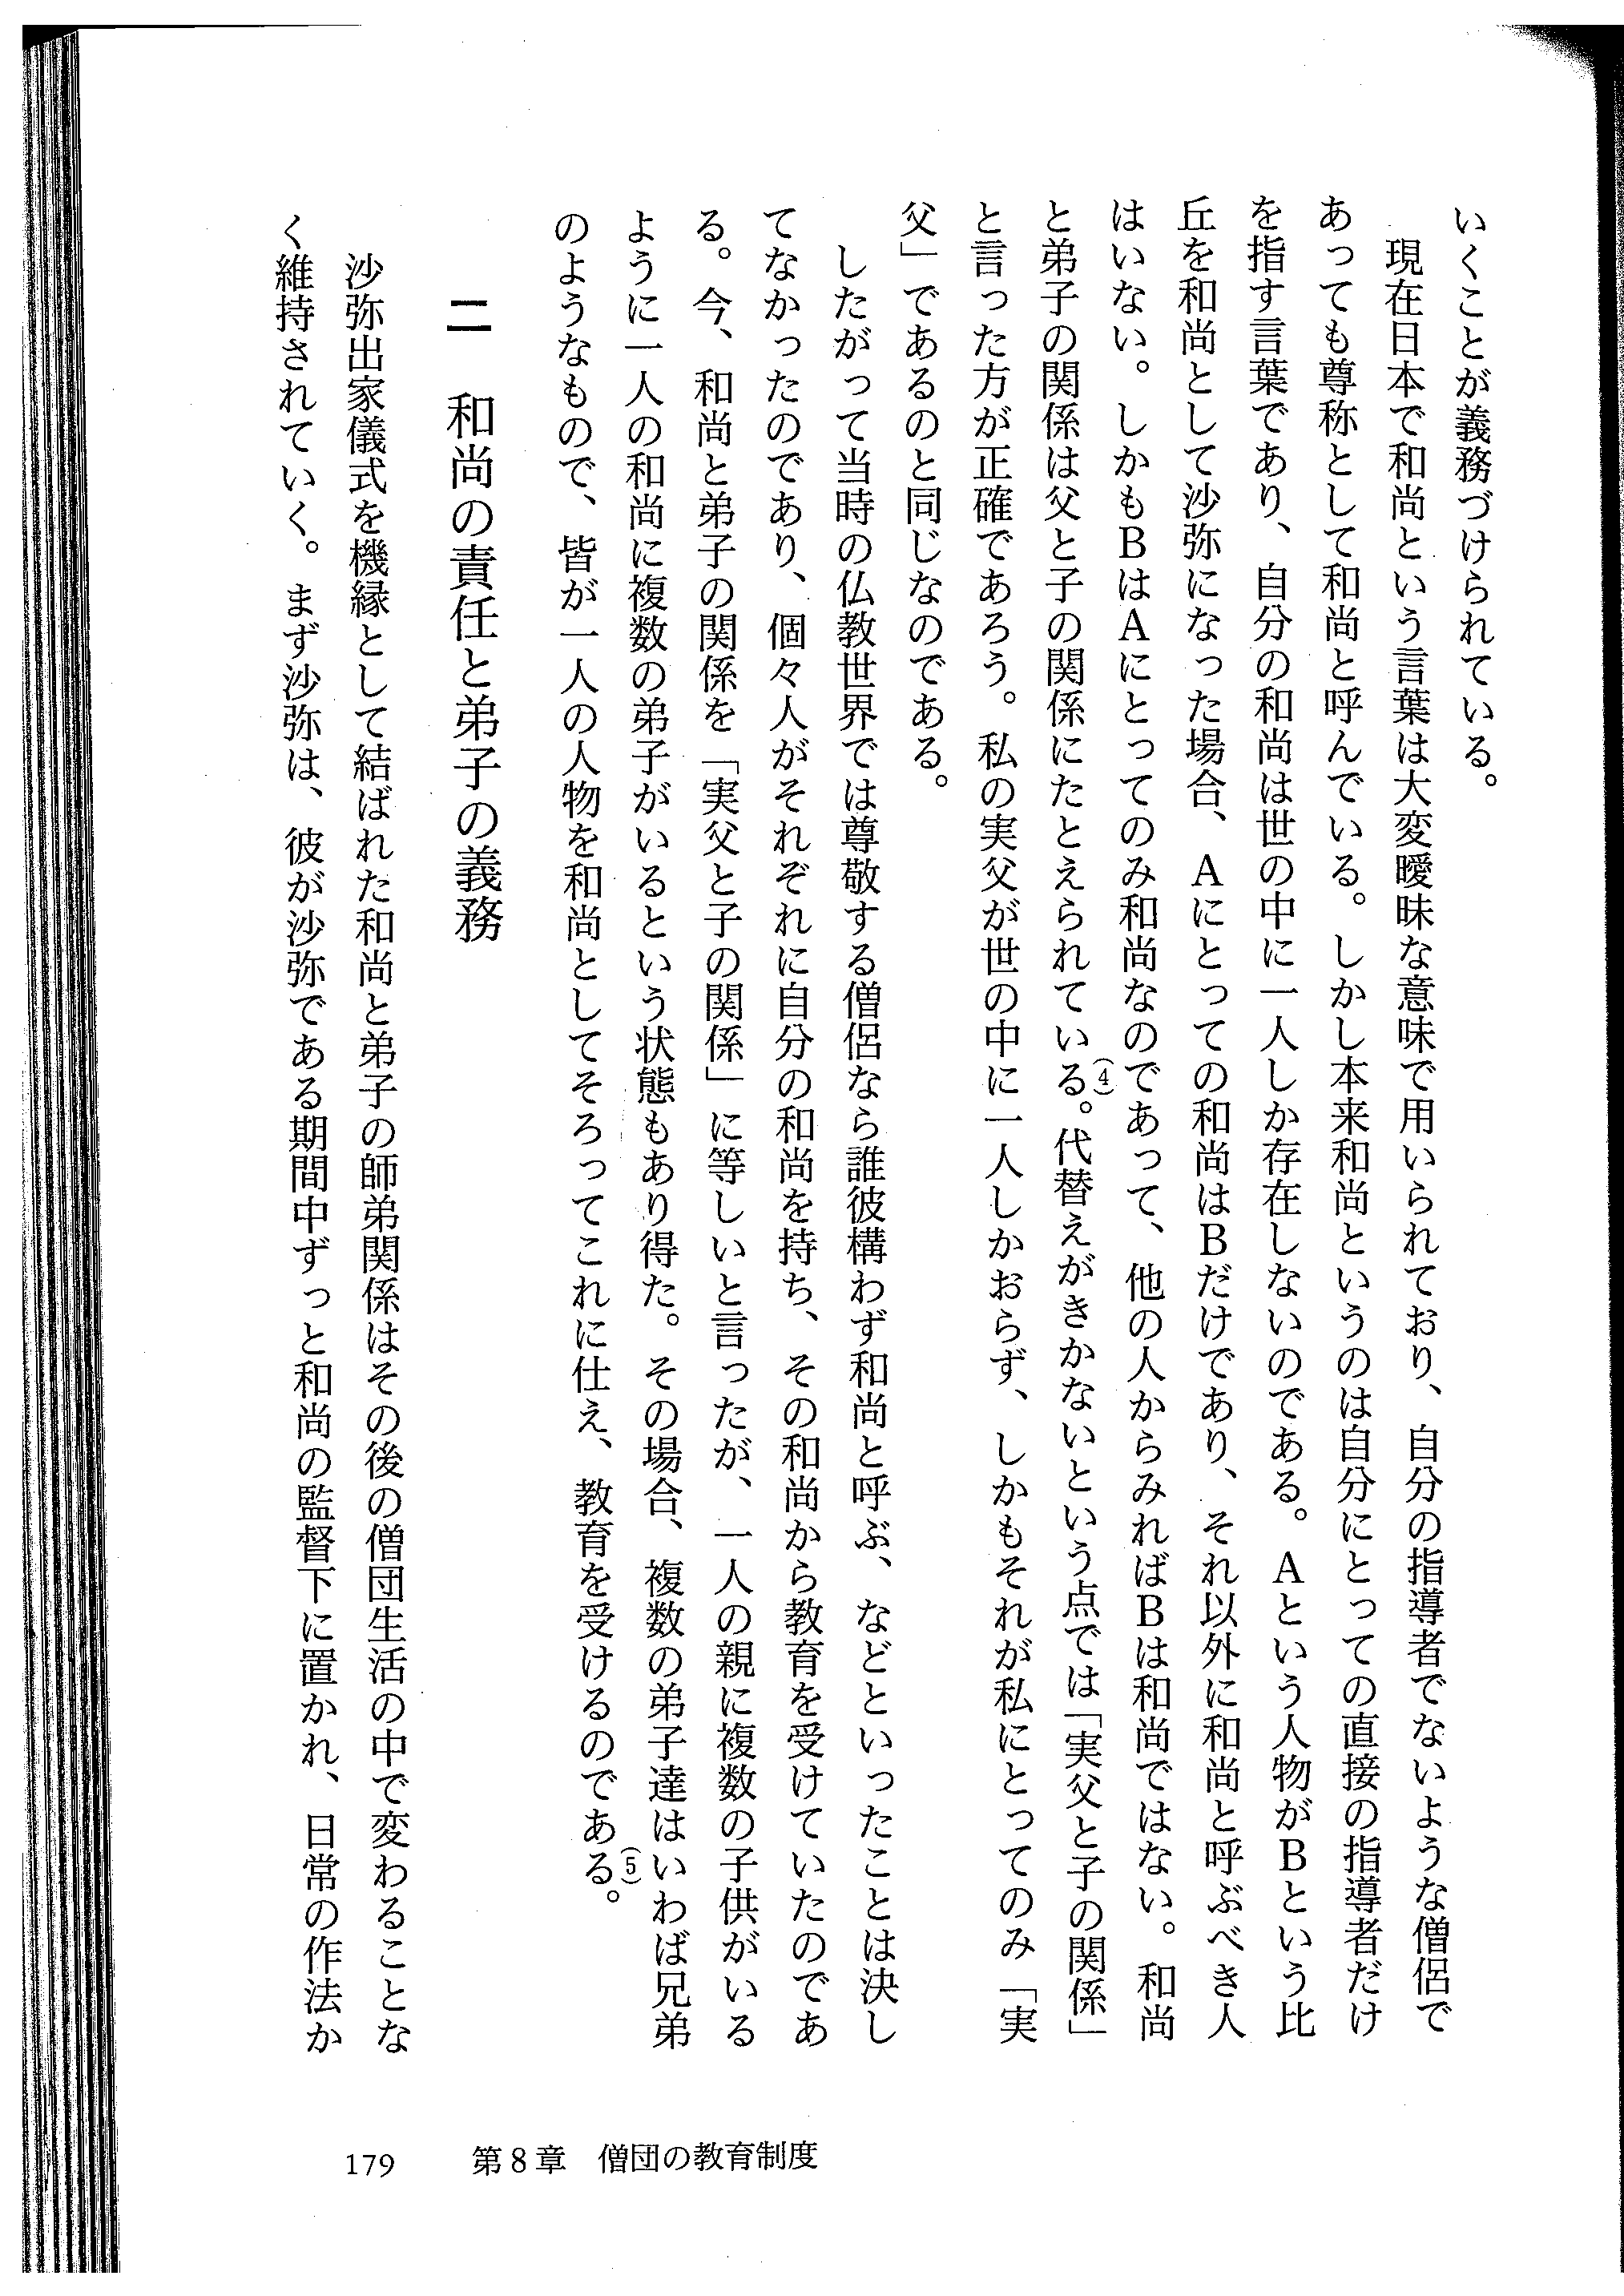 いくことが義務づけられている。
　現在日本で和尚という言葉は大変曖昧な意味で用いられており、自分の指導者でないような僧侶で
あっても尊称として和尚と呼んでいる。しかし本来和尚というのは自分にとっての直接の指導者だけ
を指す言葉であり、自分の和尚は世の中に一人しか存在しないのである。Aという人物がBという比
丘を和尚として沙弥になった場合、Aにとっての和尚はBだけであり、それ以外に和尚と呼ぶべき人
はいない。しかもBはAにとってのみ和尚なのであって、他の人からみればBは和尚ではない。和尚
と弟子の関係は父と子の関係にたとえられている(4)。代替えがきかないという点では「実父と子の関係」
と言った方が正確であろう。私の実父が世の中に一人しかおらず、しかもそれが私にとってのみ「実
父」であるのと同じなのである。
　したがって当時の仏教世界では尊敬する僧侶なら誰彼構わず和尚と呼ぶ、などといったことは決し
てなかったのであり、個々人がそれぞれに自分の和尚を持ち、その和尚から教育を受けていたのであ
る。今、和尚と弟子の関係を「実父と子の関係」に等しいと言ったが、一人の親に複数の子供がいる
ように一人の和尚に複数の弟子がいるという状態もあり得た。その場合、複数の弟子達はいわば兄弟
のようなもので、皆が一人の人物を和尚としてそろってこれに仕え、教育を受けるのである(5)。
二　和尚の責任と弟子の義務
　沙弥出家儀式を機縁として結ばれた和尚と弟子の師弟関係はその後の僧団生活の中で変わることな
く維持されていく。まず沙弥は、彼が沙弥である期間中ずっと和尚の監督下に置かれ、日常の作法か
179　第8章　僧団の教育制度